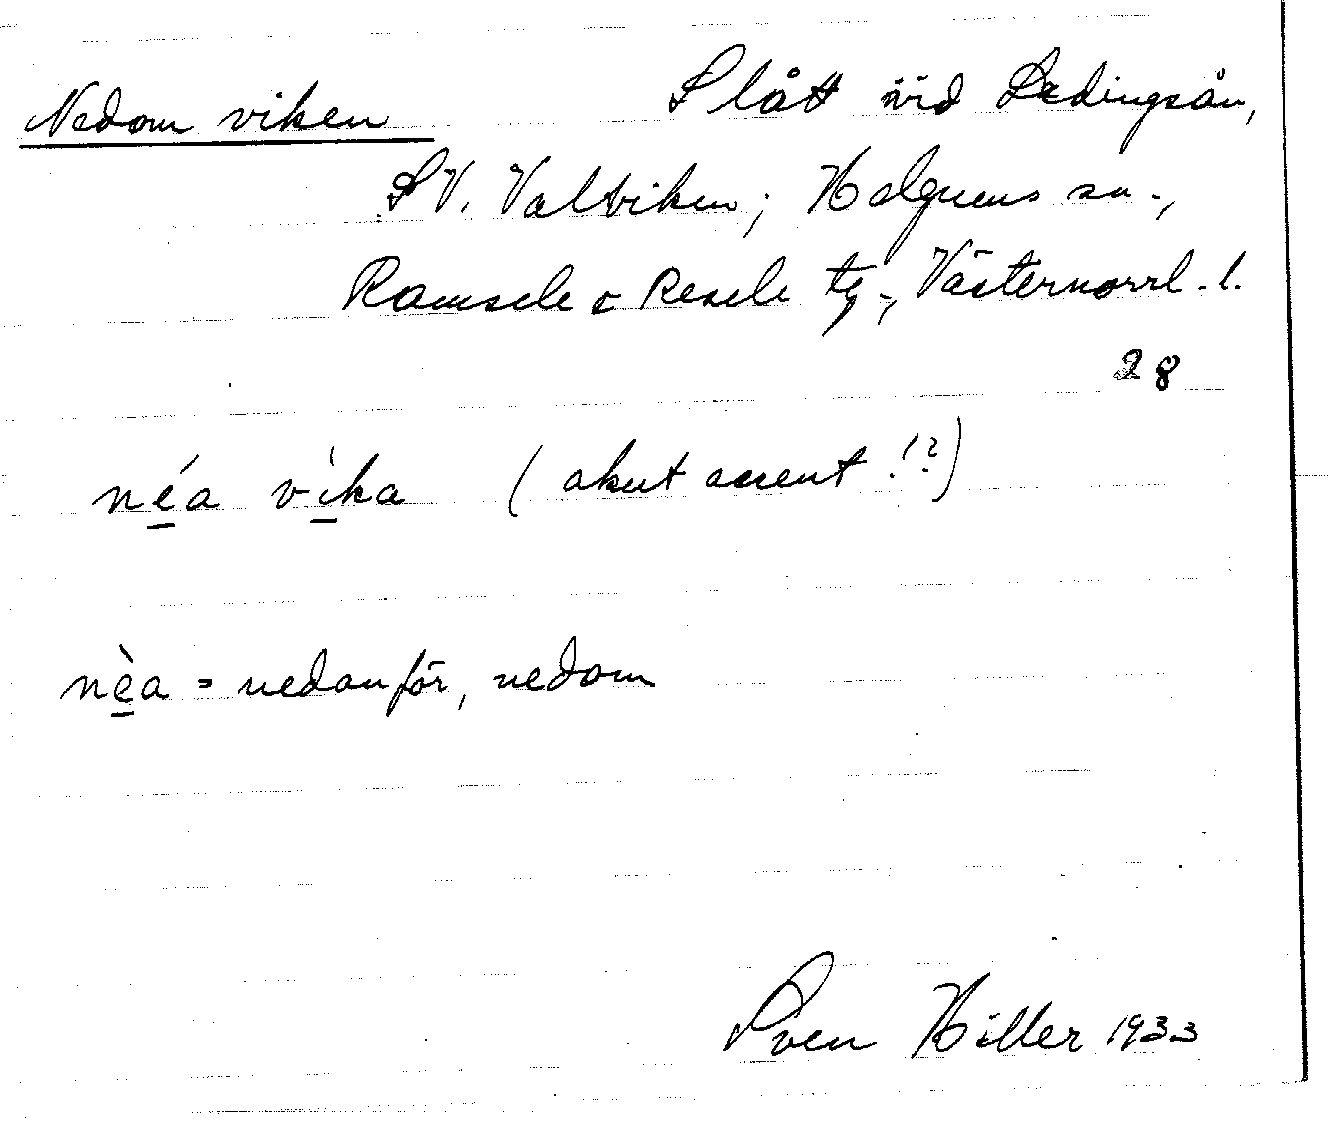 Nedom viken Slått vid Ledingsån,
SV. Valtviken; Helgums sn.,
Ramsele o Resele tg., Västernorrl. l.
28
néa víka (akut accent!?)
nèa = nedanför, nedom
Sven Hiller 1933